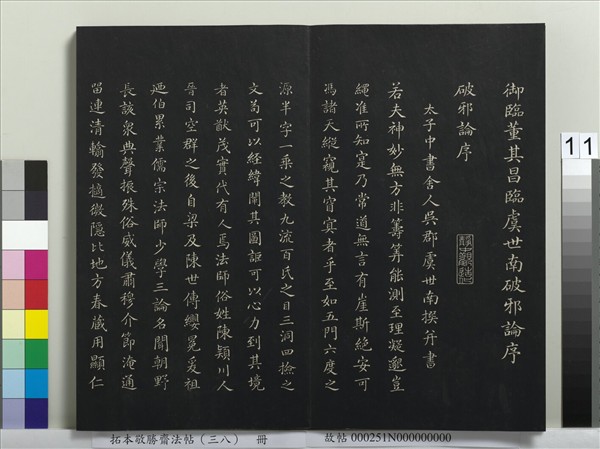 御臨董其昌臨虞世南破邪論序
破邪論序
太子中書舍人吳郡虞世南撰并書
若夫神妙無方非籌筭能測至理凝邈豈
繩准所知寔乃常道無言有崖斯絕安可
馮諸天縱窺其窅冥者乎至如五門六度之
源半字一乘之教九流百氏之目三洞四撿之
文苟可以經緯闡其圖詎可以心力到其境
者英猷茂實代有人焉法師俗姓陳潁川人
晉司空群之後自梁及陳世傳纓冕爰祖
廼伯累業儒宗法師少學三論名聞朝野
長該眾典聲振殊俗威儀肅穆介節淹通
留連清翰發擿微隱比地方春藏用顯仁
11
拓本敬勝齋法帖(三八) 冊
故帖 000251N000000000